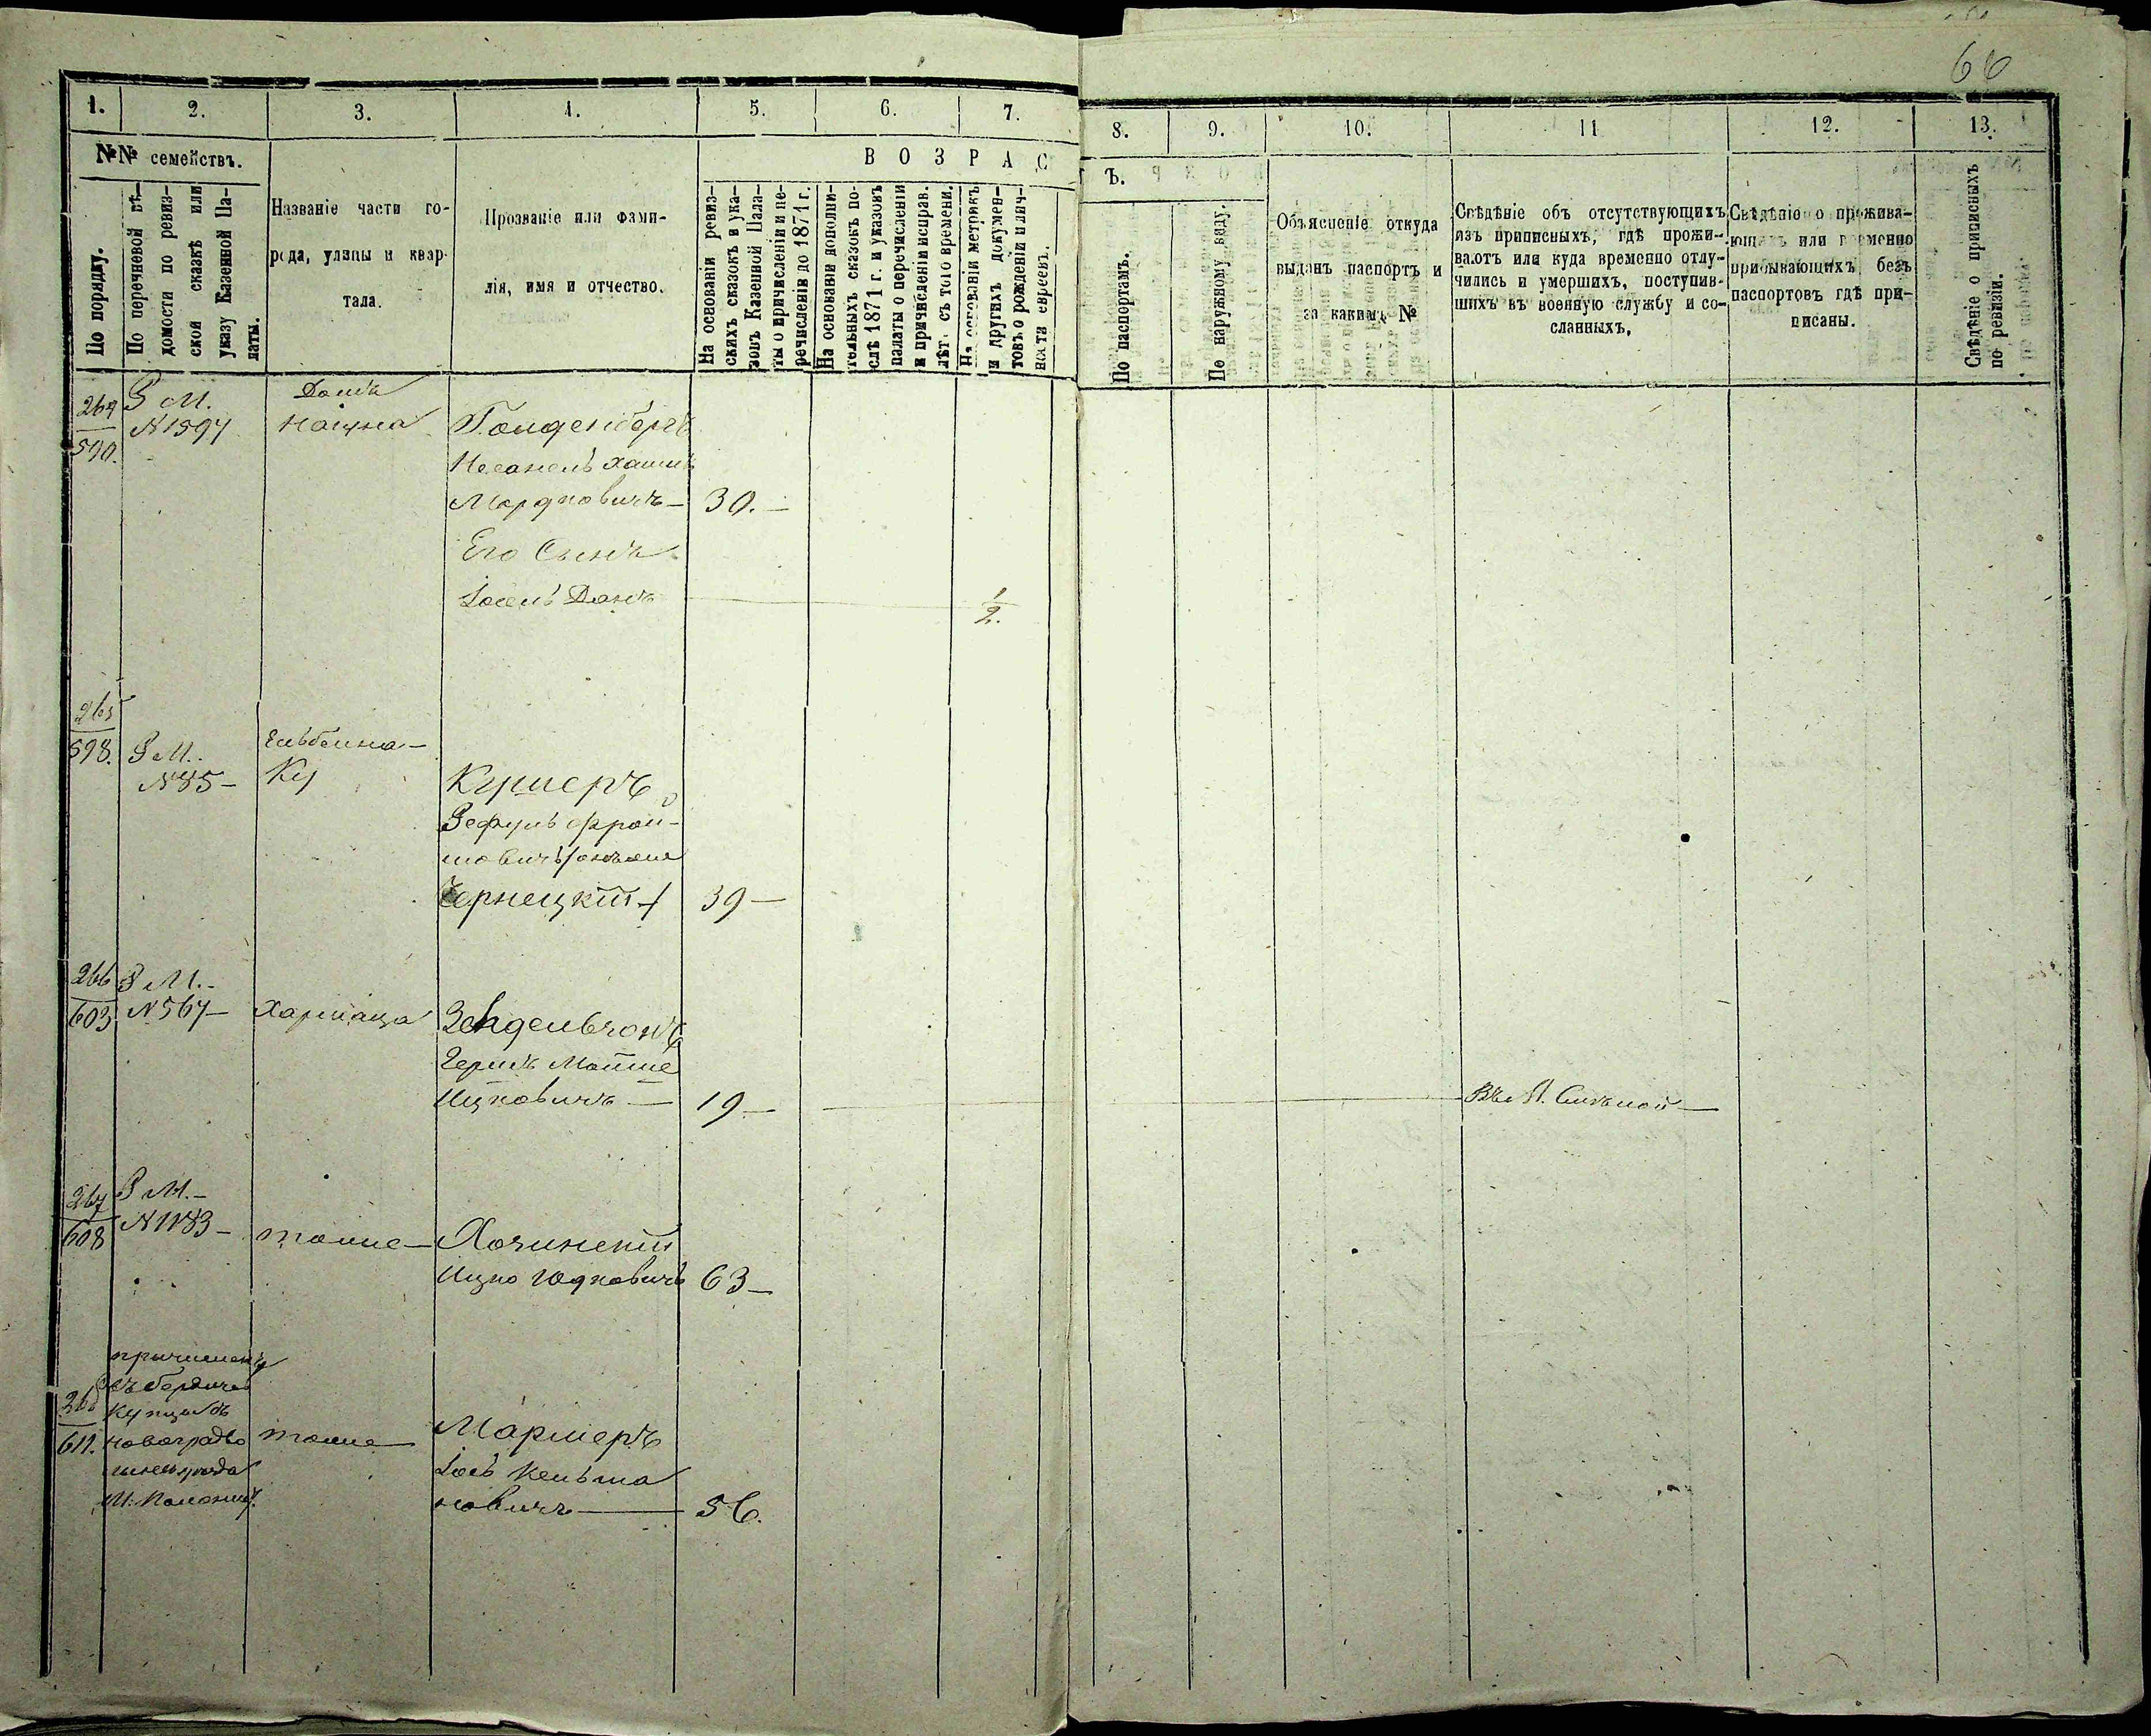 66
1.
2.
3.
4.
5.
6.
7.
8.
9.
10.
11
12.
13.
№№ семействъ.
По порядку.
По перечневой вѣ-
домости по ревиз-
ской сказкѣ или
указу Казенной Па-
латы.
Названіе части го-
рода, улицы и квар-
тала.
Прозваніе или фами-
лія, имя и отчество.
ВОЗРАС
Ъ.
На основаніи ревиз-
скихъ сказокъ и ука-
зовъ Казенной Пала-
ты о причисленіи и пе-
речисленіи до 1871 г.
На основаніи дополни-
тельныхъ сказокъ по-
слѣ 1871 г. и указовъ
палаты о перечисленіи
и причисленіи исправ.
лѣт. съ того времени.
На основаніи метрикъ
и другихъ докумен-
товъ о рожденіи и лич-
ности евреевъ.
По паспортамъ.
По наружному виду.
Объясненіе откуда
выданъ паспортъ и
за какимъ №
Свѣдѣніе объ отсутствующихъ
изъ приписныхъ, гдѣ прожи-
ваютъ или куда временно отлу-
чились и умершихъ, поступив-
шихъ въ военную службу и со-
сланныхъ.
Свѣдѣніе о прожива-
ющихъ или временно
прибывающихъ безъ
паспортовъ гдѣ при-
писаны.
Свѣдѣніе о приписныхъ
по ревизіи.
264
590.
Р М.
№ 1597
Домъ
Гольденбергъ
Мордковичъ — 30. —
Его Сынъ
1/2.
265
598.
Р М.
№ 85 —
Кушеръ
Чернецкій 39 —
266
603
Р М. —
№ 567 —
Гершъ
Ицковичъ — 19. —
267
608
Р М. —
№ 1183 —
тоже —
Хочинскій
Ицко Юдковичъ 63 —
268
611.
причисленъ
Купцовъ
тоже —
Мармеръ
Іось Кельма
новичъ — 56.